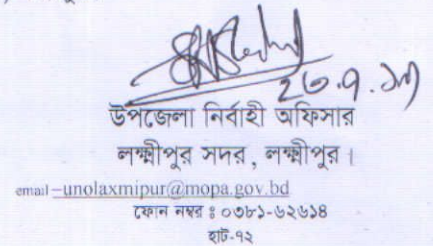 উপজেলা নির্বাহী অফিসার
লক্ষ্মীপুর সদর, লক্ষ্মীপুর।
email –unolaxmipur@mopa.gov.bd
ফোন নম্বর ঃ ০৩৮১-৬২৬১৪
হাট-৭২